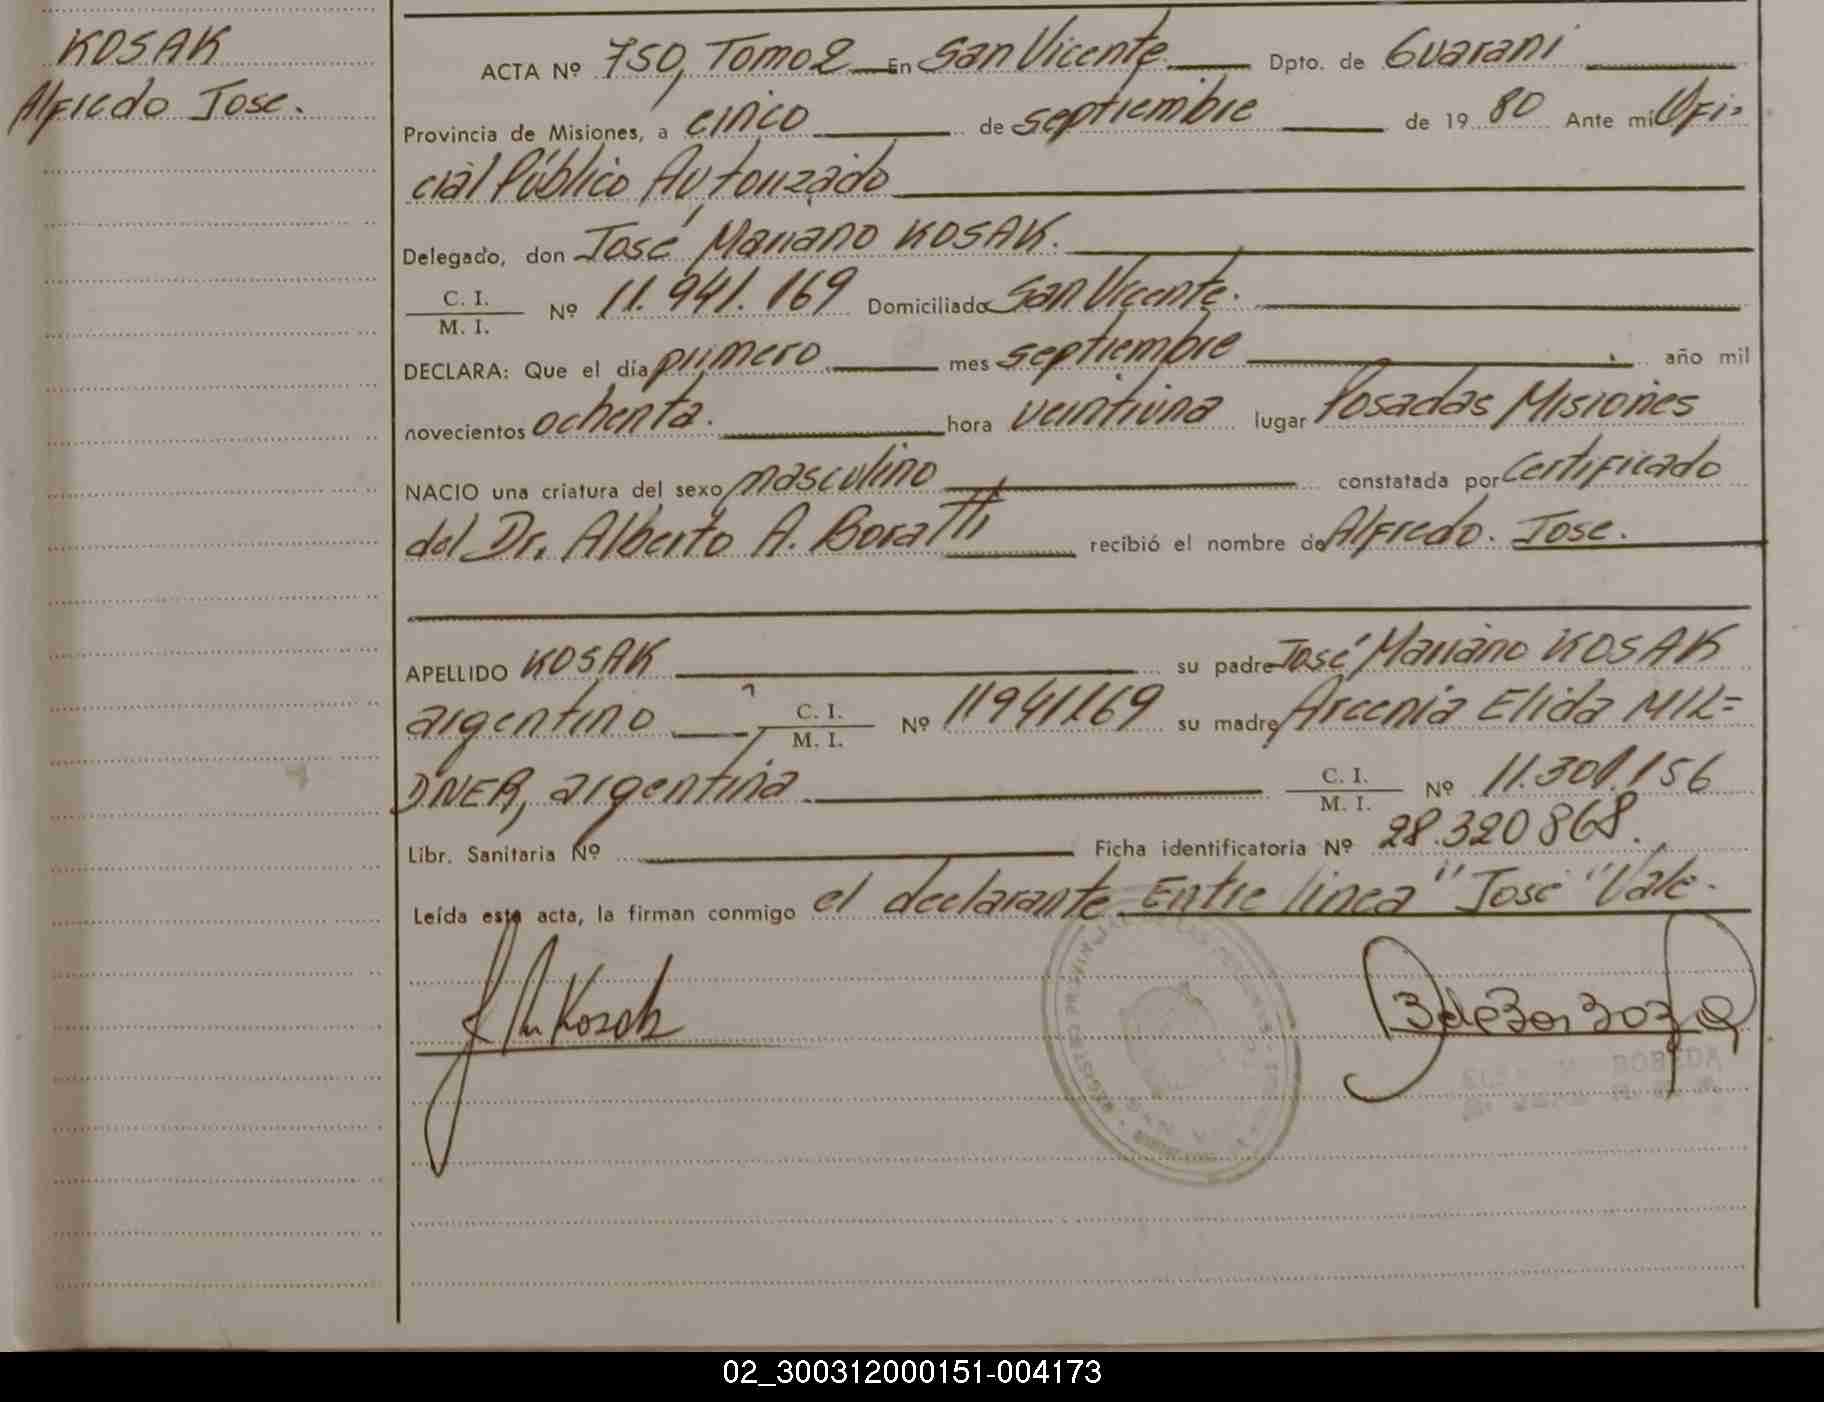 KOSAK
Alfredo Jose.
ACTA Nº 750, Tomo 2 En San Vicente Dpto. de Guarani
Provincia de Misiones, a cinco de septiembre de 1980 Ante mi Ofi=
cial Público Autorizado
Delegado, don José Mariano KOSAK.
C. I.
M. I.
Nº 11.941.169 Domiciliado San Vicente.
DECLARA: Que el día primero mes septiembre año mil
novecientos ochenta. hora veintiuna lugar Posadas Misiones
NACIO una criatura del sexo masculino constatada por Certificado
del Dr. Alberto A. Boratti recibió el nombre de Alfredo. Jose.
APELLIDO KOSAK su padre José Mariano KOSAK
argentino C. I.
M. I.
Nº 11941169 su madre Arcenia Elida MIL=
DNER, argentina C. I.
M. I.
Nº 11.301.156
Libr. Sanitaria Nº Ficha identificatoria Nº 28.320868.
Leída esta acta, la firman conmigo el declarante Entre linea "José" Vale.
Kosak
BOBEDA
02_300312000151-004173